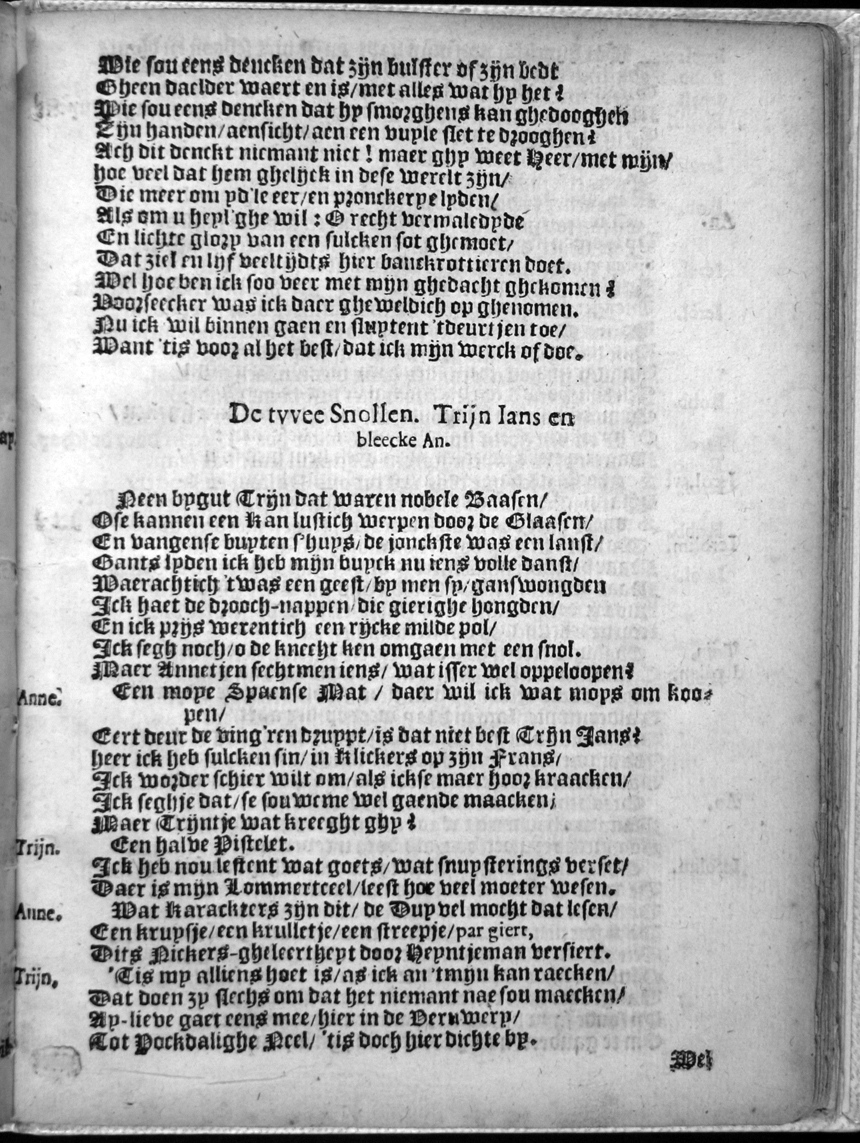 Wie sou eens dencken dat zijn bulster of zijn bedt
Gheen daelder waert en is/met alles wat hy het?
Wie sou eens dencken dat hy smorghens kan ghedooghen
Zijn handen/aensicht/aen een vuyle slet te drooghen?
Ach dit denckt niemant niet! maer ghy weet Heer/met mijn/
hoe veel dat hem ghelijck in dese werelt zijn/
Die meer om yd'le eer/en pronckerye lyden/
Als om u heyl'ghe wil: O recht vermaledyde
En lichte glory van een sulcken sot ghemoet/
Dat ziel en lijf veeltijdts hier banckrottieren doet.
Wel hoe ben ick soo veer met mijn ghedacht ghekomen?
Voorseecker was ick daer gheweldich op ghenomen.
Nu ick wil binnen gaen en sluytent 'tdeurtjen toe/
Want 'tis voor al het best/dat ick mijn werck of doe.
De tvvee Snollen. Trijn Ians en
bleecke An.
Neen bygut Trijn dat waren nobele Baasen/
Ose kannen een Kan lustich werpen door de Glaasen/
En vangense buyten s'huys/de jonckste was een lanst/
Gants lyden ick heb mijn buyck nu iens volle danst/
Waerachtich 'twas een geest/by men sy/ganswongden
Ick haet de drooch-nappen/die gierighe hongden/
En ick prijs werentich een rijcke milde pol/
Ick segh noch/o de knecht ken omgaen met een snol.
Maer Annetjen sechtmen iens/wat isser wel oppeloopen?
Anne. Een moye Spaense Mat/daer wil ick wat moys om koo-
pen/
Eert deur de ving'ren druypt/is dat niet best Trijn Jans?
heer ick heb sulcken sin/in Klickers op zijn Frans/
Ick worder schier wilt om/als ickse maer hoor kraacken/
Ick seghje dat/se souweme wel gaende maacken;
Maer Trijntje wat kreeght ghy?
Trijn. Een halve Pistelet.
Ick heb nou lestent wat goets/wat snuysterings verset/
Daer is mijn Lommertceel/leest hoe veel moeter wesen.
Anne. Wat Karackters zijn dit/de Duyvel mocht dat lesen/
Een kruysje/een krulletje/een streepje/par giert,
Dits Nickers-gheleertheyt door Heyntjeman versiert.
Trijn. 'Tis my alliens hoet is/as ick an 'tmijn kan raecken/
Dat doen zy slechs om dat het niemant nae sou maecken/
Ay-lieve gaet eens mee/hier in de Verwery/
Tot Pockdalighe Neel/'tis doch hier dichte by.
Wel